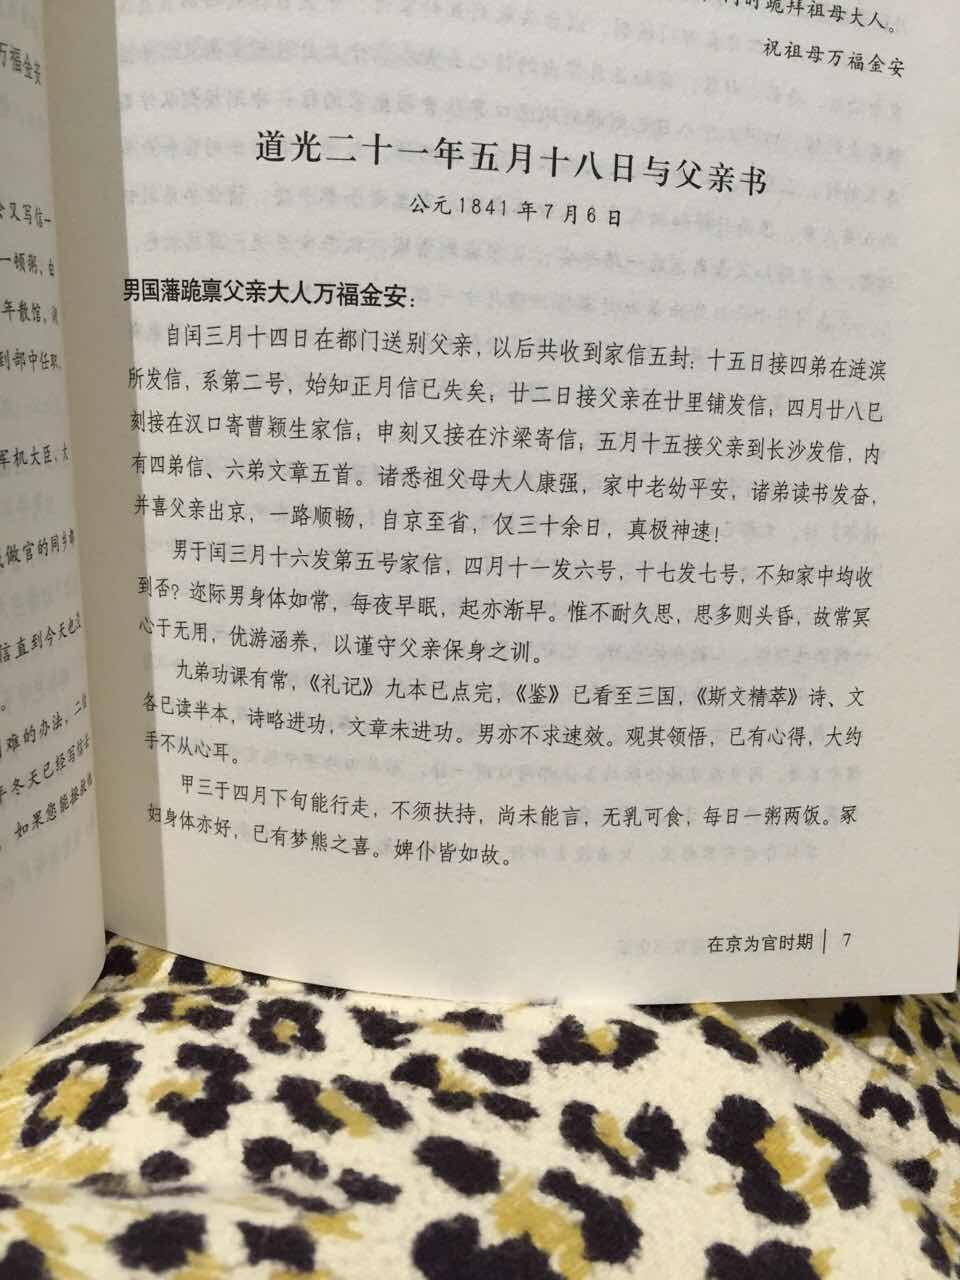 万福金安
会又写信一
一顿粥、白
年散馆，
到部中任职，
军机大臣、太
做官的同乡
信直到今天也
难的办法，二
冬天已经写信
，如果您能
时跪拜祖母大人。
祝祖母万福金安
道光二十一年五月十八日与父亲书
公元1841年7月6日
男国藩跪禀父亲大人万福金安：
自闰三月十四日在都门送别父亲，以后共收到家信五封：十五日接四弟在涟滨
所发信，系第二号，始知正月信已失矣；廿二日接父亲在廿里铺发信；四月廿八巳
刻接在汉口寄曹颖生家信；申刻又接在汴梁寄信；五月十五接父亲到长沙发信，内
有四弟信、六弟文章五首。诸悉祖父母大人康强，家中老幼平安，诸弟读书发奋，
并喜父亲出京，一路顺畅，自京至省，仅三十余日，真极神速！
男于闰三月十六发第五号家信，四月十一发六号，十七发七号，不知家中均收
到否？迩际男身体如常，每夜早眠，起亦渐早。惟不耐久思，思多则头昏，故常冥
心于无用，优游涵养，以谨守父亲保身之训。
九弟功课有常，《礼记》九本已点完，《鉴》已看至三国，《斯文精萃》诗、文
各已读半本，诗略进功，文章未进功。男亦不求速效。观其领悟，已有心得，大约
手不从心耳。
甲三于四月下旬能行走，不须扶持，尚未能言，无乳可食，每日一粥两饭。冢
妇身体亦好，已有梦熊之喜。婢仆皆如故。
在京为官时期 7